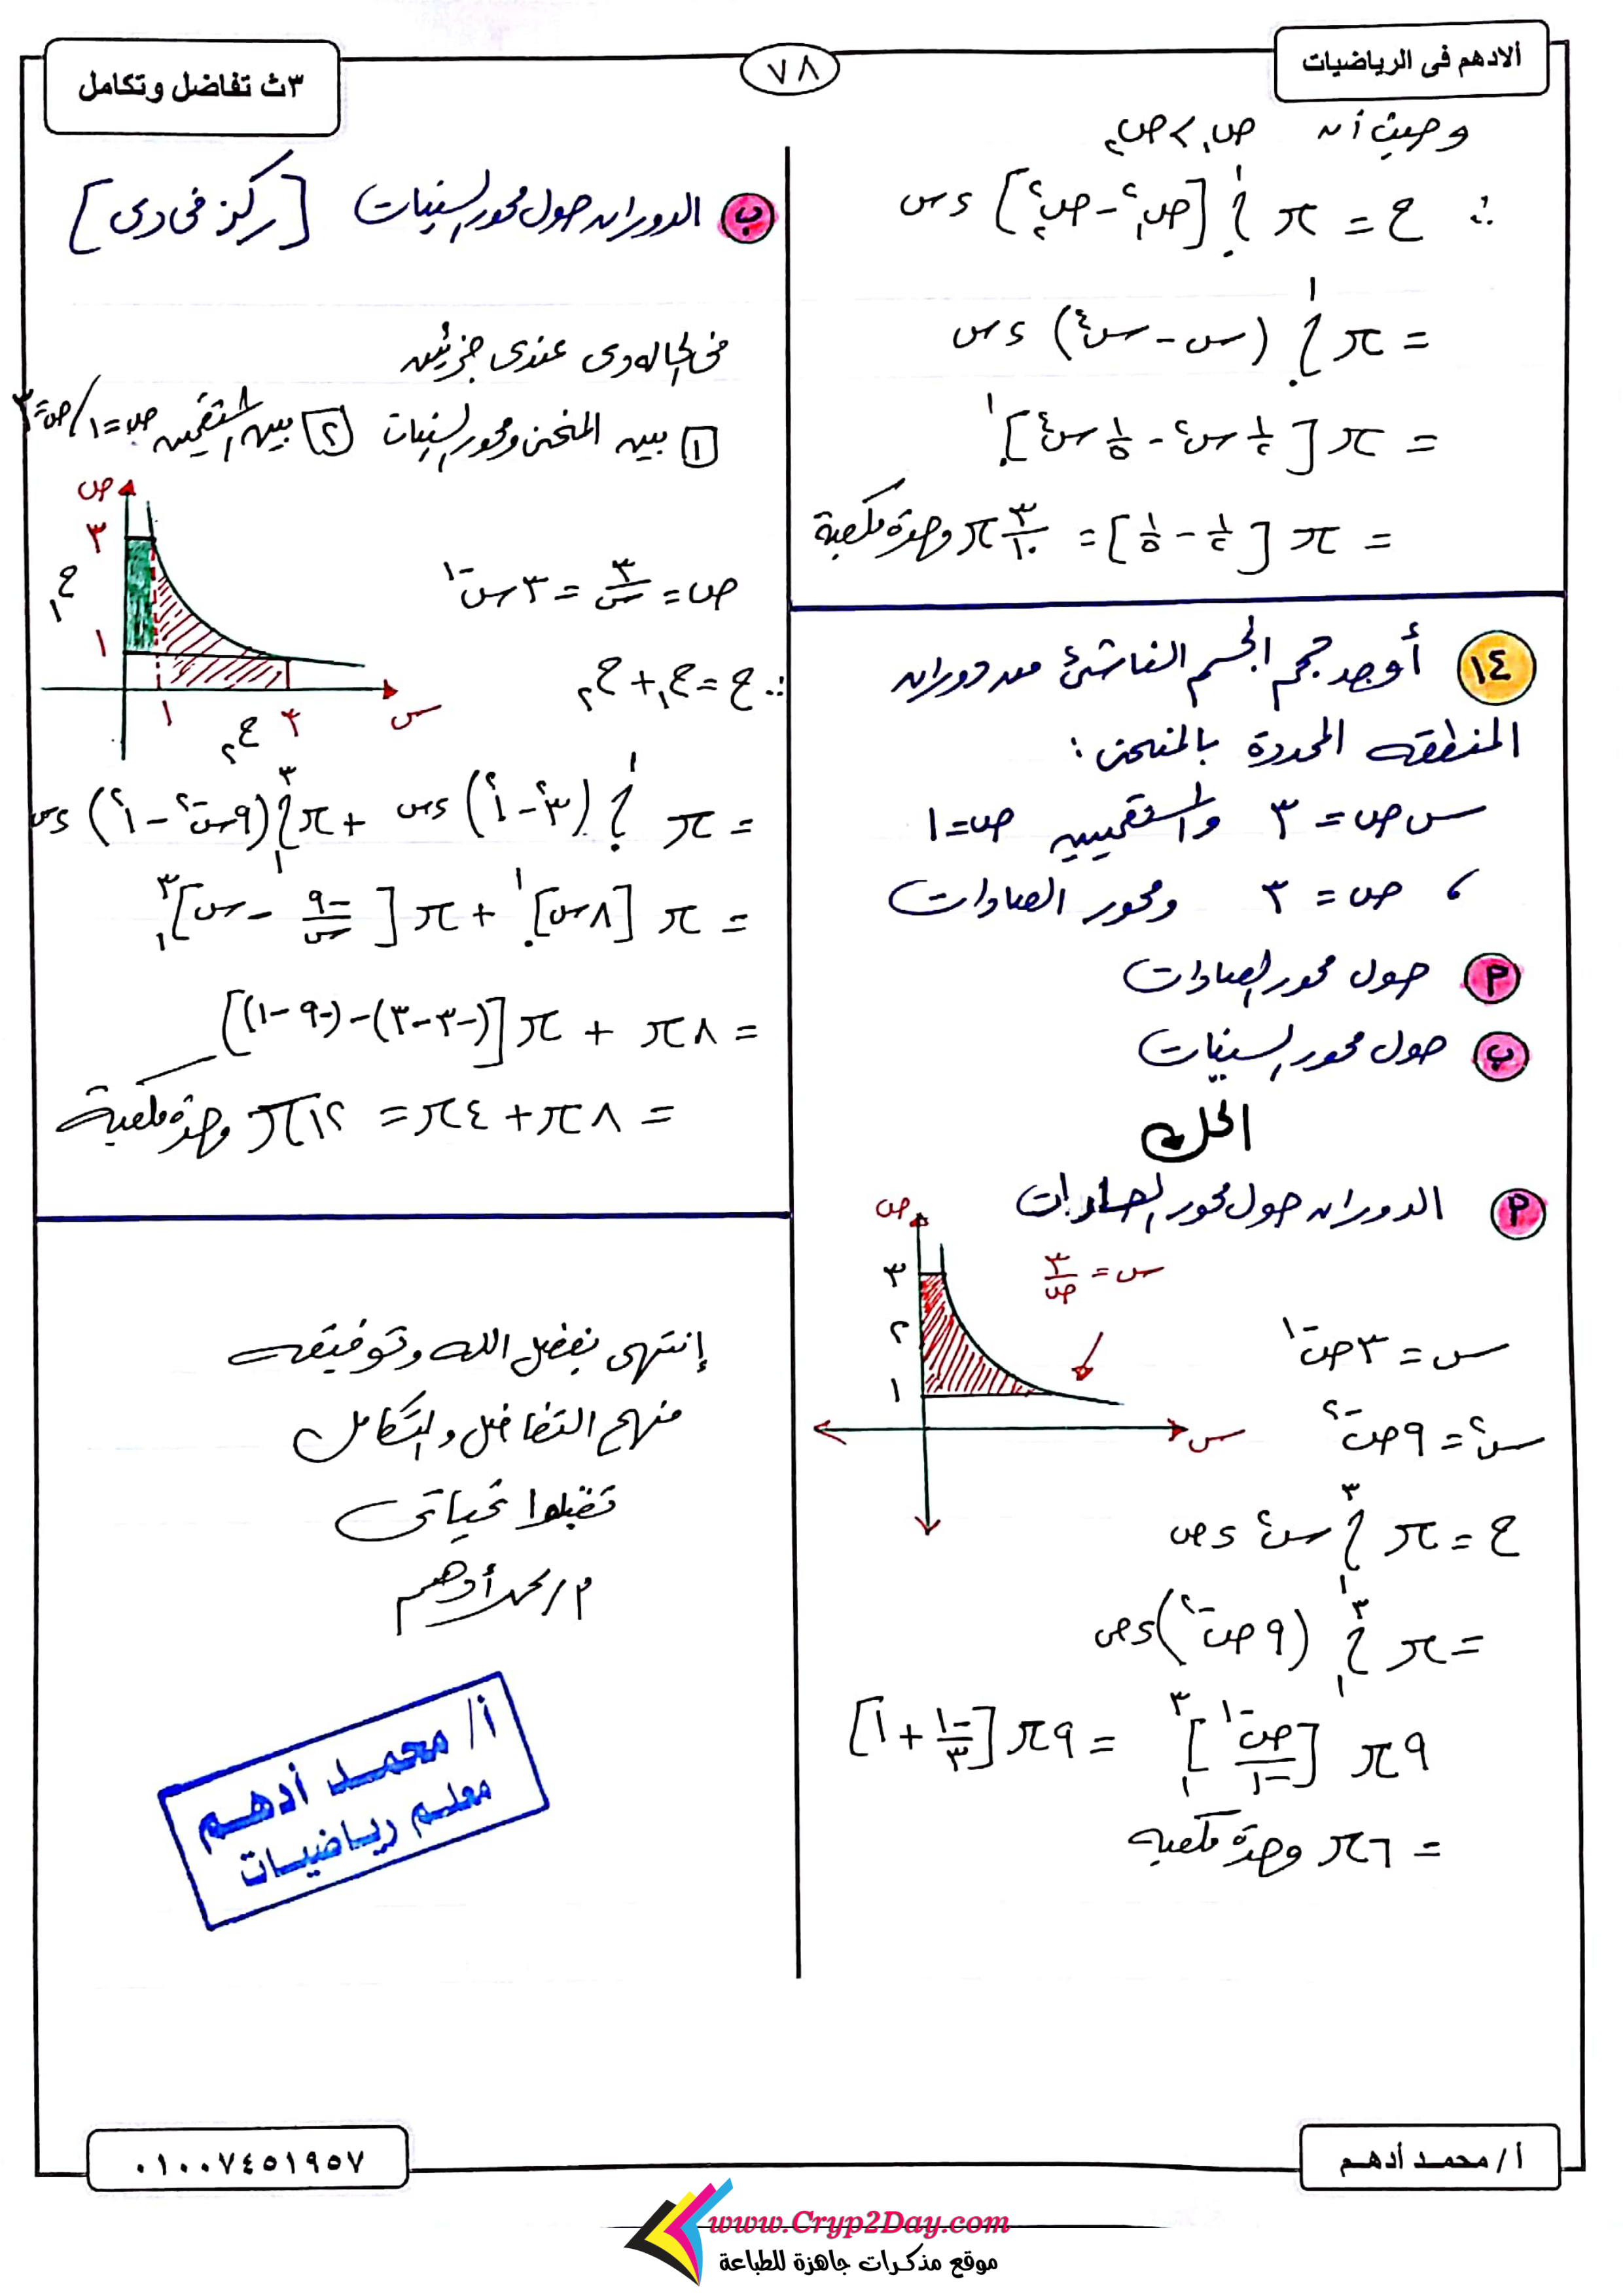 الادهم فى الرياضيات
٧٨
٣ث تفاضل وتكامل
وحيث أن ص١ > ص٢
∴ ح = π ∫٠^١ [ص١² - ص٢²] ءس
= π ∫٠^١ (س - س⁴) ءس
= π [١/٢ س² - ١/٥ س⁵]٠^١
= π [١/٢ - ١/٥] = ٣/١٠ π وحدة مكعبة
١٤ أوجد حجم الجسم الناشئ من دوران
المنطقه المحددة بالمنحنى :
س ص = ٣ والمستقيمين ص = ١
، ص = ٣ ومحور الصادات
٢ حول محور الصادات
ب حول محور السينات
الحل
٢ الدوران حول محور الصادات
ص
س = ٣/ص
٣
٢
١
س
س = ٣ص⁻¹
س² = ٩ص⁻²
ح = π ∫١^٣ س² ءص
= π ∫١^٣ (٩ص⁻²) ءص
٩π [ص⁻¹/-١]١^٣ = ٩π [-١/٣ + ١]
= ٦π وحدة مكعبة
ب الدوران حول محور السينات [ركز فى دى]
فى الحاله دى عندى جزئين
١ بين المنحنى ومحور السينات ٢ بين المستقيمين ص=١ / ص=٣
ص
٣
ح١
١
١
٣
س
ح٢
ص = ٣/س = ٣س⁻¹
∴ ح = ح١ + ح٢
= π ∫٠^١ (٣² - ١²) ءس + π ∫١^٣ (٩س⁻² - ١²) ءس
= π [٨س]٠^١ + π [-٩/س - س]١^٣
= ٨π + π [(-٣-٣) - (-٩-١)]
= ٨π + ٤π = ١٢π وحدة مكعبة
إنتهى بفضل الله وتوفيقه
منهج التفاضل والتكامل
تقبلوا تحياتى
م/محمد أدهم
أ/ محمد أدهم
معلم رياضيات
أ/ محمد أدهم
٠١٠٠٧٤٥١٩٥٧
www.Cryp2Day.com
موقع مذكرات جاهزة للطباعة